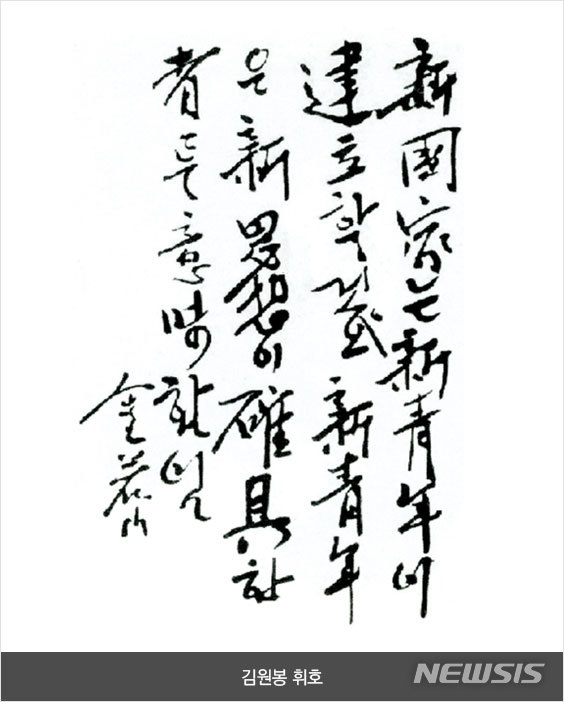 新國家는新靑年이
建立할 新靑年
은新思想이確具한
者를意味
金若山
김원봉 휘호
NEWSIS